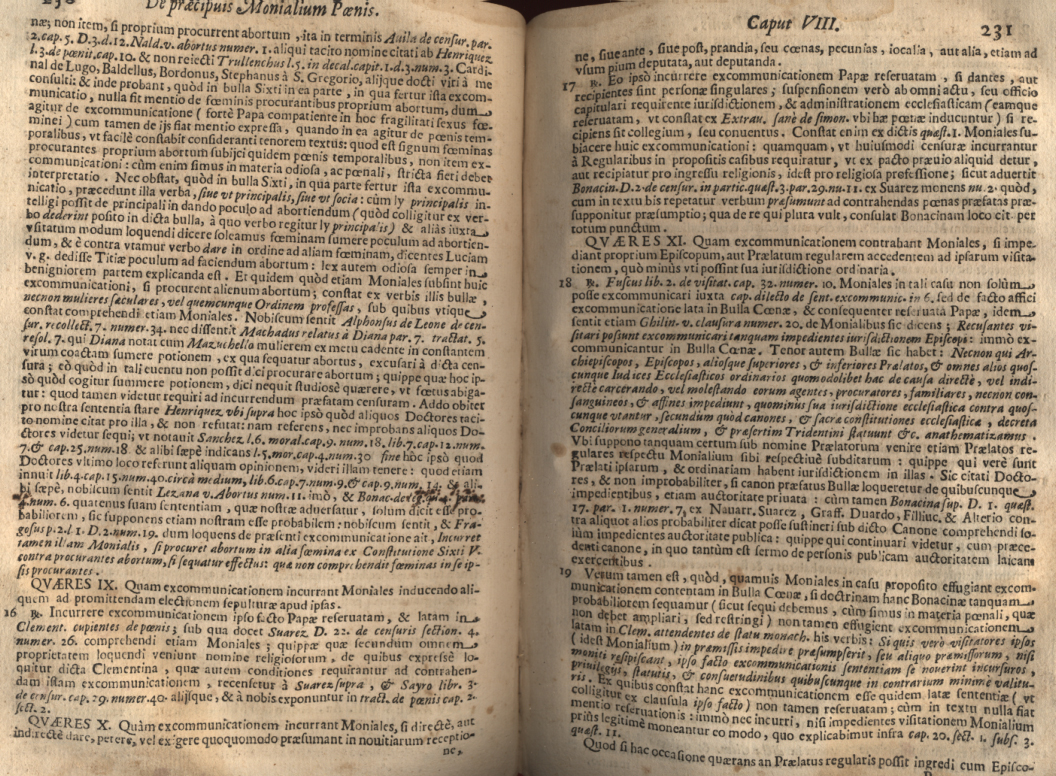 De præcipuis Monialium Pœnis.
næ; non item, si proprium procurrent abortum, ita in terminis Auila de censur. par.
2. cap. 5. D. 3. d. 12. Nald. v. abortus numer. 1. aliqui tacito nomine citati ab Henriquez
l. 3. de pœnit. cap. 10. & non reiecti Trullenchus l. 5. in decal. capit. 1. d. 3. num. 3. Cardi-
nal de Lugo, Baldellus, Bordonus, Stephanus à S. Gregorio, alijque docti viti à me
consulti: & inde probant, quòd in bulla Sixti in ea parte, in qua fertur ista excom-
municatio, nulla fit mentio de fœminis procurantibus proprium abortum, dum
agitur de excommunicatione (fortè Papa compatiente in hoc fragilitati sexus fœ-
minei) cum tamen de ijs fiat mentio expressa, quando in ea agitur de pœnis tem-
poralibus, vt facilè constabit consideranti tenorem textus: quod est signum fœminas
procurantes proprium abortum subijci quidem pœnis temporalibus, non item ex-
communicationi: cùm enim simus in materia odiosa, ac pœnali, stricta fieri debet
interpretatio. Nec obstat, quòd in bulla Sixti, in qua parte fertur ista excommu-
nicatio, præcedunt illa verba, siue vt principalis, siue vt socia: cùm ly principalis in-
telligi possit de principali in dando poculo ad abortiendum (quòd colligitur ex ver-
bo dederint posito in dicta bulla, à quo verbo regitur ly principalis) & aliàs iuxta
vsitatum modum loquendi dicere soleamus fœminam sumere poculum ad abortien-
dum, & è contrà vtamur verbo dare in ordine ad aliam fœminam, dicentes Luciam
v. g. dedisse Titiæ poculum ad faciendum abortum: lex autem odiosa semper in
benigniorem partem explicanda est. Et quidem quòd etiam Moniales subsint huic
excommunicationi, si procurent alienum abortum; constat ex verbis illis bullæ,
necnon mulieres sæculares, vel quemcunque Ordinem professas, sub quibus vtique
constat comprehendi etiam Moniales. Nobiscum sentit Alphonsus de Leone de cen-
sur. recollect. 7. numer. 34. nec dissentit Machadus relatus à Diana par. 7. tractat. 5.
resol. 7. qui Diana notat cum Mazuchello mulierem ex metu cadente in constantem
virum coactam sumere potionem, ex qua sequatur abortus, excusari à dicta cen-
sura; eò quòd in tali euentu non possit dici procurare abortum; quippe quæ hoc ip-
sò quòd cogitur summere potionem, dici nequit studiosè quærere, vt fœtus abiga-
tur: quod tamen videtur requiri ad incurrendum præfatam censuram. Addo obiter
pro nostra sententia stare Henriquez vbi supra hoc ipsò quòd aliquos Doctores taci-
to nomine citat pro illa, & non refutat: nam referens, nec improbans aliquos Do-
ctores videtur sequi; vt notauit Sanchez l. 6. moral. cap. 9. num. 18. lib. 7. cap. 12. num.
7. & cap. 25. num. 18. & alibi sæpè indicans l. 5. mor. cap. 4. num. 30 sine hoc ipsò quod
Doctores vltimo loco referunt aliquam opinionem, videri illam tenere: quod etiam
innuit lib. 4. cap. 15. num. 40. circà medium, lib. 6. cap. 7. num. 9. & cap. 9. num. 14. & ali-
bi sæpè, nobilcum sentit Lezana v. Abortus num. 11. imò, & Bonac. de
num. 6. quatenus suam sententiam, quæ nostræ aduersatur, solum dicit esse pro-
babiliorem, sic supponens etiam nostram esse probabilem: nobiscum sentit, & Fra-
gosus p. 2. l. 1. D. 2. num. 19. dum loquens de præsenti excommunicatione ait, Incurret
tamen illam Monialis, si procuret abortum in alia fœmina ex Constitutione Sixti V.
contra procurantes abortum, si sequatur effectus: quæ non comprehendit fœminas in se ip-
sis procurantes.
QVÆRES IX. Quam excommunicationem incurrant Moniales inducendo ali-
quem ad promittendam electionem sepulturæ apud ipsas.
16 ℞. Incurrere excommunicationem ipso facto Papæ reseruatam, & latam in
Clement. cupientes de pœnis; sub qua docet Suarez D. 22. de censuris section. 4.
numer. 26. comprehendi etiam Moniales; quippæ quæ secundum omnem
proprietatem loquendi veniunt nomine religiosorum, de quibus expressè lo-
quitur dicta Clementina, quæ autem conditiones requirantur ad contrahen-
dam istam excommunicationem, recensetur à Suarez supra, & Sayro libr. 3.
de censur. cap. 29. numer. 40. alijsque, & à nobis exponuntur in tract. de pœnis cap. 2.
sect. 2.
QVÆRES X. Quàm excommunicationem incurrant Moniales, si directè, aut
indirectè dare, petere, vel exigere quoquomodo præsumant in nouitiarum receptio-
ne,
Caput VIII. 231
ne, siue ante, siue post, prandia, seu cœnas, pecunias, iocalia, aut alia, etiam ad
vsum pium deputata, aut deputanda.
17 ℞. Eo ipsò incurrere excommunicationem Papæ reseruatam, si dantes, aut
recipientes sint personæ singulares; suspensionem verò ab omni actu, seu officio
capitulari requirente iurisdictionem, & administrationem ecclesiasticam (eamque
reseruatam, vt constat ex Extrau. sanè de simon. vbi hæ pœnæ inducuntur) si re-
cipiens sit collegium, seu conuentus. Constat enim ex dictis quæst. 1. Moniales su-
biacere huic excommunicationi: quamquam, vt huiusmodi censuræ incurrantur
à Regularibus in propositis casibus requiratur, vt ex pacto præuio aliquid detur,
aut recipiatur pro ingressu religionis, idest pro religiosa professione; sicut aduertit
Bonacin. D. 2. de censur. in partic. quæst. 3. par. 29. nu. 11. ex Suarez monens nu. 2. quòd,
cum in textu bis repetatur verbum præsumunt ad contrahendas pœnas præfatas præ-
supponitur præsumptio; qua de re qui plura vult, consulat Bonacinam loco cit. per
totum punctum.
QVÆRES XI. Quam excommunicationem contrahant Moniales, si impe-
diant proprium Episcopum, aut Prælatum regularem accedentem ad ipsarum visita-
tionem, quò minùs vti possint sua iurisdictione ordinaria.
18 ℞. Fuscus lib. 2. de visitat. cap. 32. numer. 10. Moniales in tali casu non solùm
posse excommunicari iuxta cap. dilecto de sent. excommunic. in 6. sed de facto affici
excommunicatione lata in Bulla Cœnæ, & consequenter reseruata Papæ, idem
sentit etiam Ghilin. v. clausura numer. 20. de Monialibus sic dicens; Recusantes vi-
sitari possunt excommunicari tanquam impedientes iurisdictionem Episcopi: immò ex-
communicantur in Bulla Cœnæ, Tenor autem Bullæ sic habet: Necnon qui Ar-
chiepiscopos, Episcopos, aliosque superiores, & inferiores Prælatos, & omnes alios quos-
cunque Iudices Ecclesiasticos ordinarios quomodolibet hac de causa directè, vel indi-
rectè carcerando, vel molestando eorum agentes, procuratores, familiares, necnon con-
sanguineos, & affines impediunt, quominus sua iurisdictione ecclesiastica contra quos-
cunque vtantur, secundum quòd canones, & sacræ constitutiones ecclesiasticæ, decreta
Conciliorum generalium, & præsertim Tridentini statuunt &c. anathematizamus.
Vbi suppono tanquam certum sub nomine Prælatorum venire etiam Prælatos re-
gulares respectu Monialium sibi respectiuè subditarum: quippe qui verè sunt
Prælati ipsarum, & ordinariam habent iurisdictionem in illas. Sic citati Docto-
res, & non improbabiliter, si canon præfatus Bullæ loqueretur de quibuscunque
impedientibus, etiam auctoritate priuata: cùm tamen Bonacina sup. D. 1. quæst.
17. par. 1. numer. 7, ex Nauarr. Suarez, Graff. Duardo, Filliuc. & Alterio con-
tra aliquot alios probabiliter dicat posse sustineri sub dicto Canone comprehendi so-
lùm impedientes auctoritate publica: quippe qui continuari videtur, cum præce-
denti canone, in quo tantùm est sermo de personis publicam auctoritatem laicam
exercentibus.
19 Verum tamen est, quòd, quamuis Moniales in casu proposito effugiant excom-
municationem contentam in Bulla Cœnæ, si doctrinam hanc Bonacinæ tanquam
probabiliorem sequamur (sicut sequi debemus, cùm simus in materia pœnali, quæ
non debet ampliari, sed restringi) non tamen effugient excommunicationem
latam in Clem. attendentes de statu monach. his verbis: Si quis verò visitatores ipsos
(idest Monialium) in præmissis impedire præsumpserit, seu aliquo præmissorum, nisi
moniti resipiscant, ipso facto excommunicationis sententiam se nouerint incursuros,
priuilegijs, statutis, & consuetudinibus quibuscunque in contrarium minimè valitu-
ris. Ex quibus constat hanc excommunicationem esse quidem latæ sententiæ (vt
colligitur ex clausula ipso facto) non tamen reseruatam; cùm in textu nulla fiat
mentio reseruationis: immò nec incurri, nisi impedientes visitationem Monialium
priùs legitimè moneantur eo modo, quo explicabimus infra cap. 20. sect. 1. subs. 3.
quæst. 11.
Quod si hac occasione quærans an Prælatus regularis possit ingredi cum Episco-